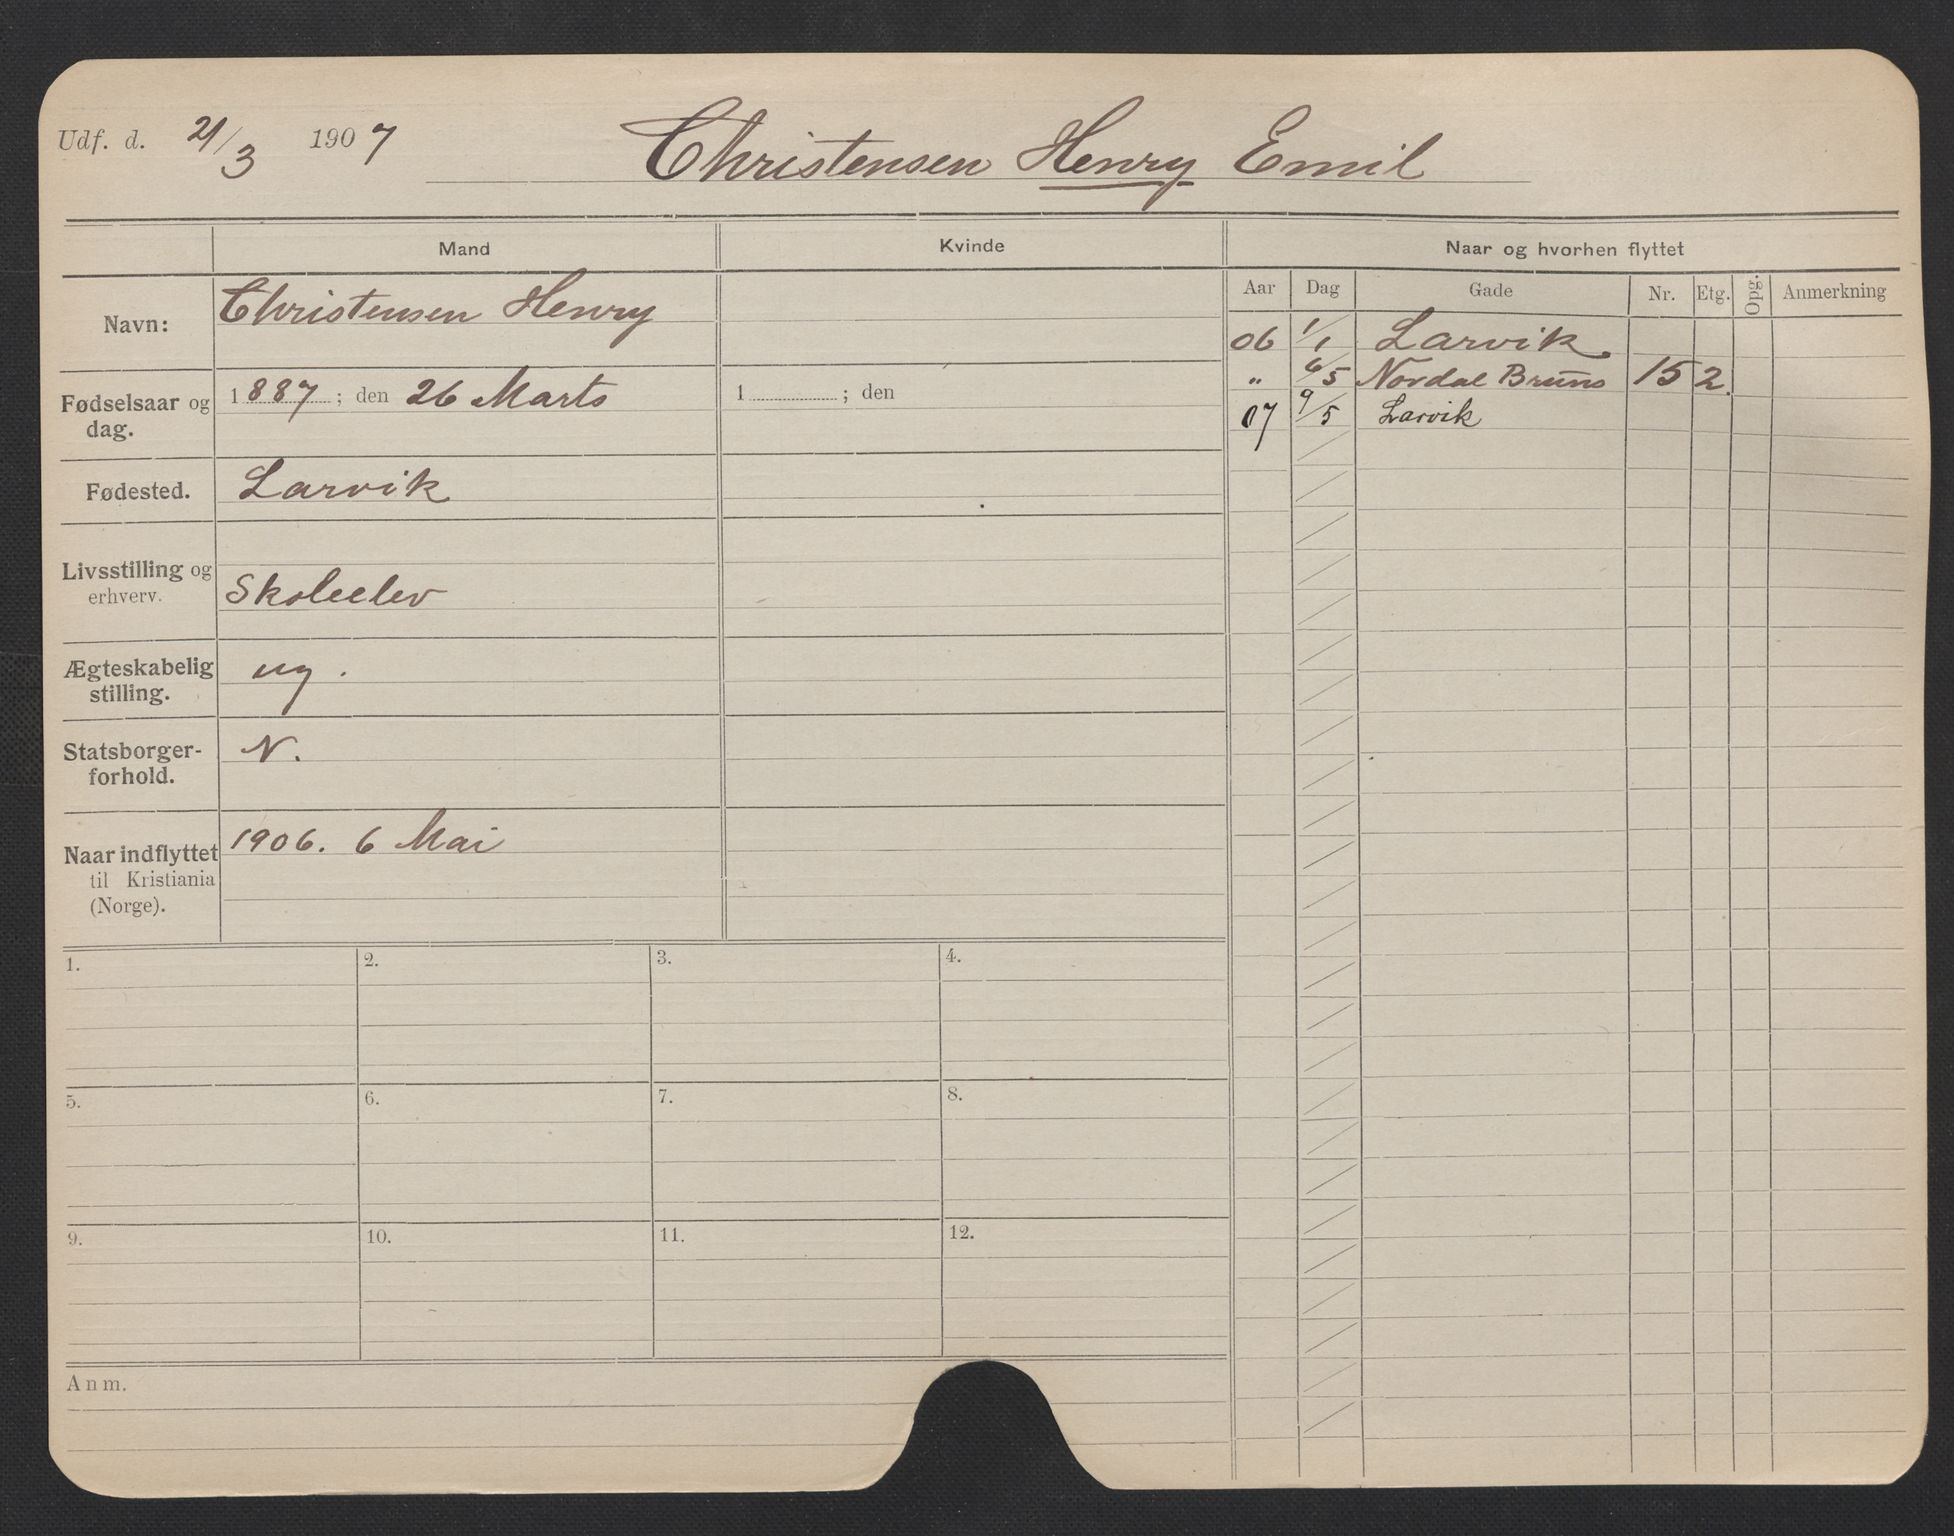 Udf. d. 21/3 1907 Christensen Henry Emil
Mand Kvinde Naar og hvorhen flyttet
Aar Dag Gade Nr. Etg. Opg. Anmerkning
Navn: Christensen Henry
06 1/1 Larvik
" 6/5 Nordal Bruns 15 2.
07 9/5 Larvik
Fødselsaar og dag. 1887; den 26 Marts 1 ; den
Fødested. Larvik
Livsstilling og
erhverv. Skoleelev
Ægteskabelig
stilling. ug.
Statsborger-
forhold. N.
Naar indflyttet 1906. 6 Mai
til Kristiania
(Norge).
1. 2. 3. 4.
5. 6. 7. 8.
9. 10. 11. 12.
Anm.